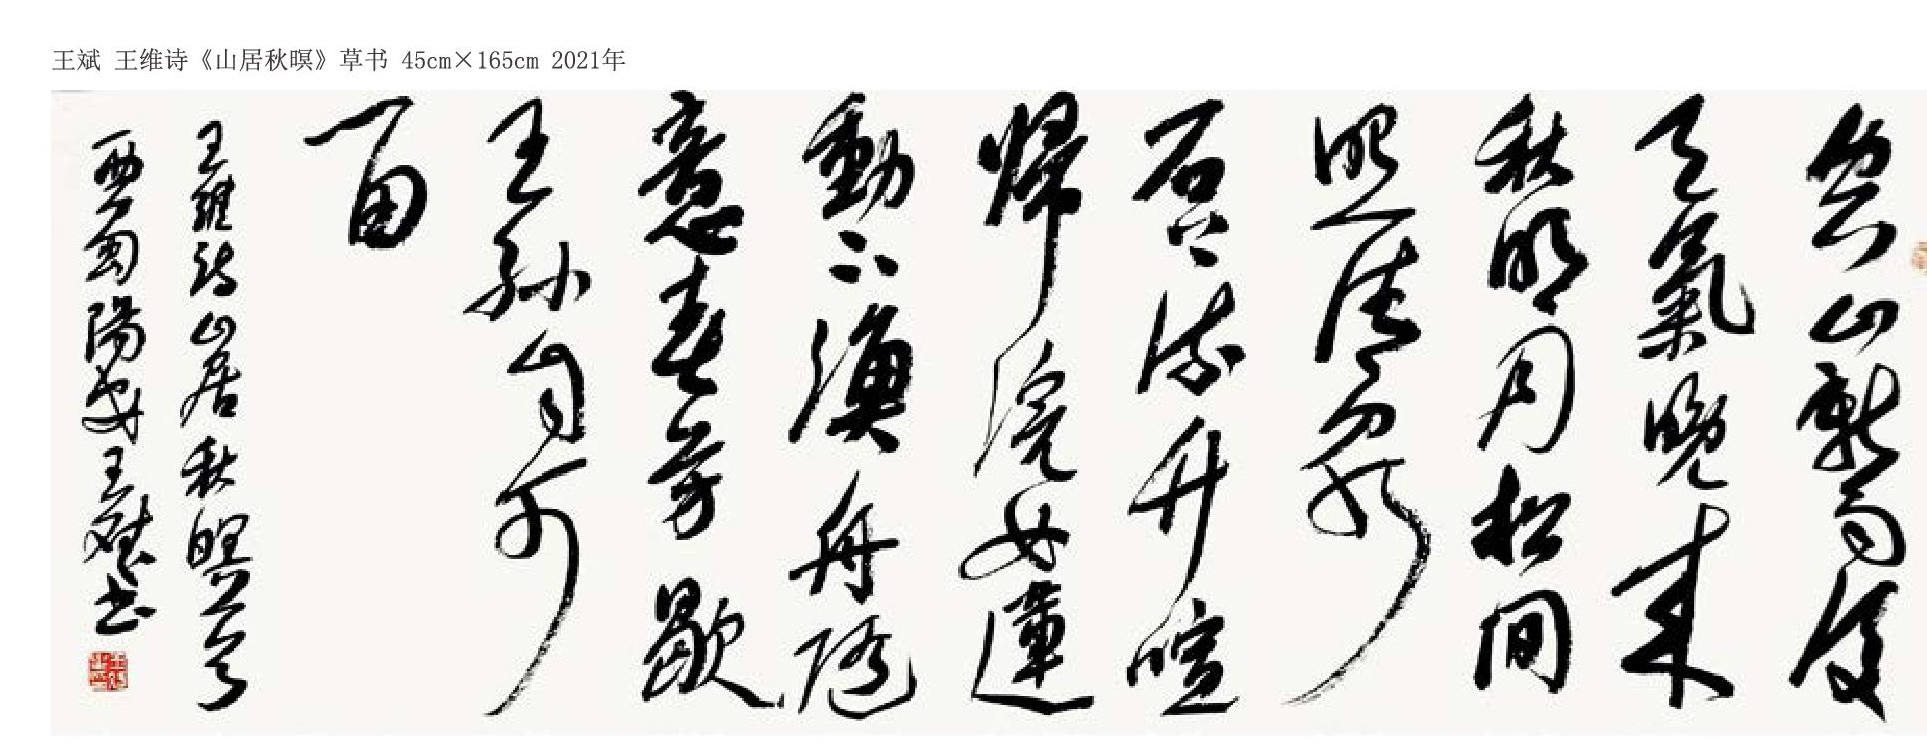 王斌 王维诗《山居秋暝》草书 45cm×165cm 2021年
空山新雨後
天氣晚來
秋明月松間
照清泉
石上流竹喧
歸浣女蓮
動下漁舟隨
意春芳歇
王孫自可
留
王維詩山居秋暝首
西蜀陽安王斌書